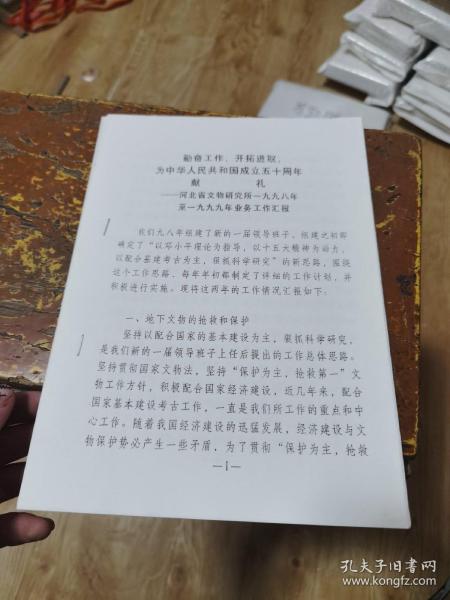 勤奋工作、开拓进取,
为中华人民共和国成立五十周年
献 礼
——河北省文物研究所一九九八年
至一九九九年业务工作汇报
我们九八年组建了新的一届领导班子，组建之初即
确定了“以邓小平理论为指导，以十五大精神为动力，
以配合基建考古为主，狠抓科学研究”的新思路，围绕
这个工作思路、每年年初都制定了详细的工作计划，并
积极进行实施。现将这两年的工作情况汇报如下。
一、地下文物的抢救和保护
坚持以配合国家的基本建设为主，狠抓科学研究，
是我们新的一届领导班子上任后提出的工作总体思路。
坚持贯彻国家文物法，坚持“保护为主，抢救第一”文
物工作方针，积极配合国家经济建设，近几年来，配合
国家基本建设考古工作，一直是我们所工作的重点和中
心工作。随着我国经济建设的迅猛发展，经济建设与文
物保护势必产生一些矛盾，为了贯彻“保护为主，抢救
—1—
孔夫子旧书网
www.kongfz.com